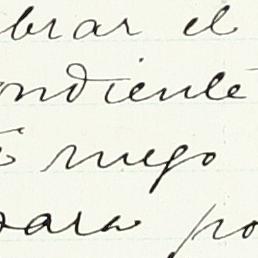 brar el
ondiente
ruego
para po